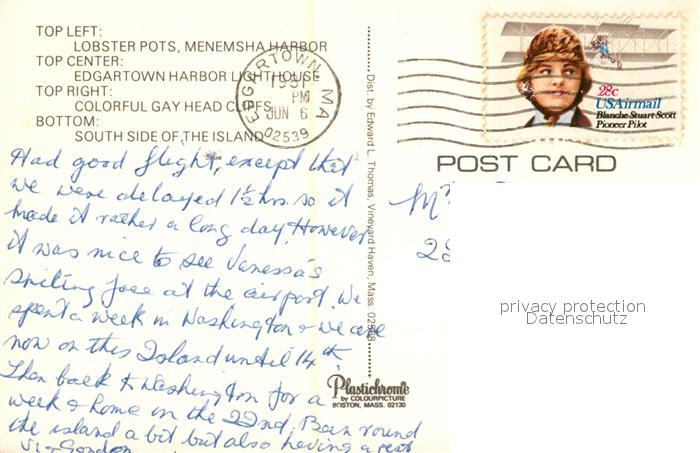 TOP LEFT:
LOBSTER POTS, MENEMSHA HARBOR
TOP CENTER:
EDGARTOWN HARBOR LIGHTHOUSE
TOP RIGHT:
COLORFUL GAY HEAD CLIFFS
BOTTOM:
SOUTH SIDE OF THE ISLAND
EDGARTOWN MA
1981
PM
JUN 6
02539
28c
USAirmail
Blanche Stuart Scott
Pioneer Pilot
POST CARD
Had good flight, except that
we were delayed 1½ hrs. so it
made it rather a long day. However
it was nice to see Vanessa's
smiling face at the airport. We
spent a week in Washington & we are
now on this Island until 14th.
Then back to Washington for a
week & home on the 22nd. Been round
the island a bit but also having a rest
Vi & Gordon
Dist. by Edward L. Thomas, Vineyard Haven, Mass. 02568
Plastichrome®
by COLOURPICTURE
BOSTON, MASS. 02130
28
privacy protection
Datenschutz